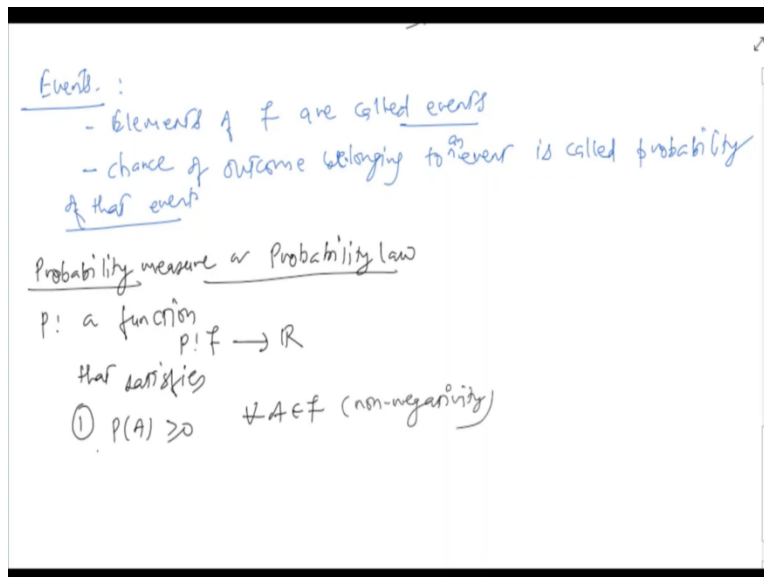 Events :
- Elements of F are called events
- chance of outcome belonging to an event is called probability
of that event
Probability measure or Probability law
P: a function
P: F → ℝ
that satisfies
① P(A) ≥ 0 ∀ A ∈ F (non-negativity)